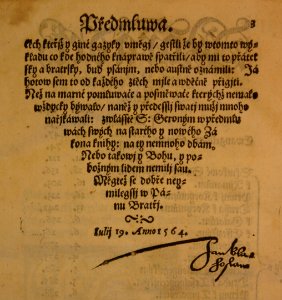 Předmluwa.
kterýž y giné gazyky vměgj / gestli že by wtomto wý-
kladu co hodného knápravě spatřili / aby mi to přátel-
sky a bratrsky, buď psánjm, nebo austně oznámili: Já
hotow sem to od každého zděčně přigjti.
Než na marné pomluwače a posměwače kterýchž nemálo
wždycky býwalo / naněž y předessli swatj mužj mnoho
nařjkáwali: zwlásstě S: Geronym w předmlu-
wách swých na starého y nowého Zá
kona knihy: na ty nemnoho dbám.
Nebo takowj y Bohu, y po-
božným lidem nemilj sau.
Mějtež se dobře ney-
milegssj w Pá-
nu Bratřj.
Iulij 19. Anno 1564.